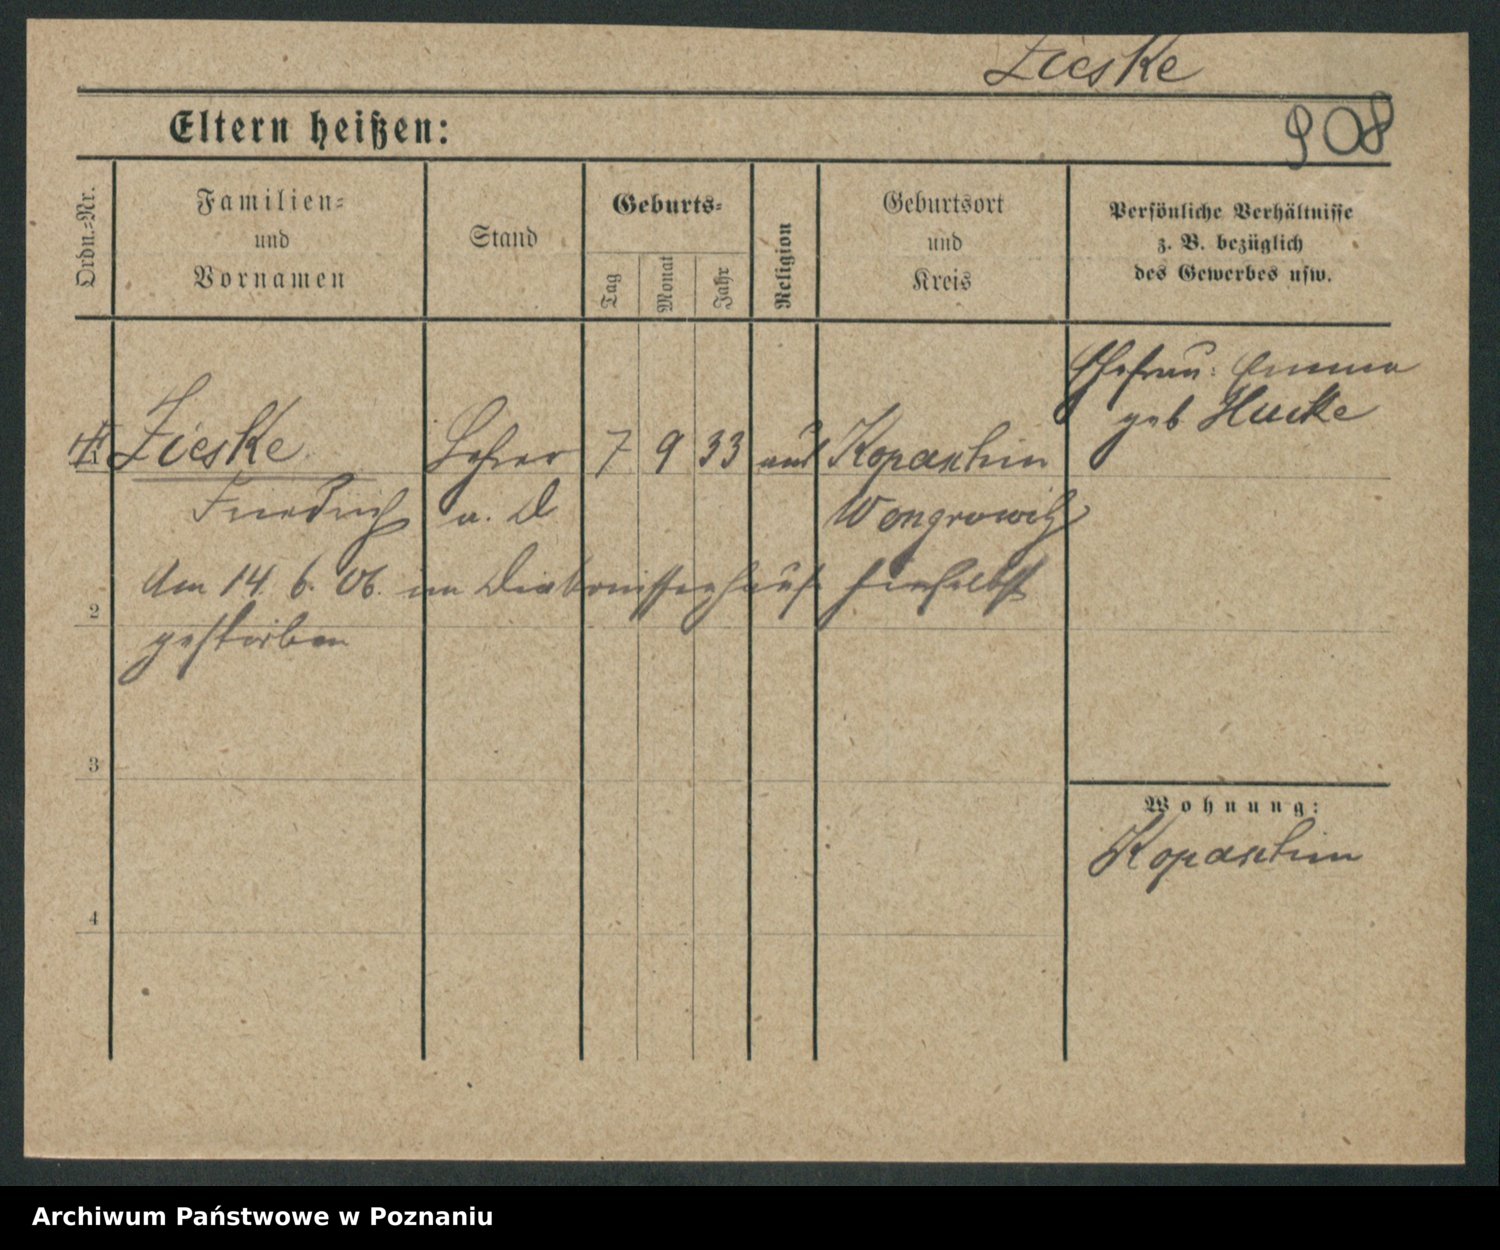 Zieske
908
Eltern heißen:
Ordn.-Nr.
Familien-
und
Vornamen
Stand
Geburts-
Tag
Monat
Jahr
Religion
Geburtsort
und
Kreis
Persönliche Verhältnisse
z. B. bezüglich
des Gewerbes usw.
Ehefrau: Emma
geb Hucke
Zieske Lehrer 7 9 33 Kopaschin
Friedrich a. D Wongrowitz
Am 14. 6. 06. im Diakonissenhause hierselbst
2
gestorben
3
Wohnung:
Kopaschin
4
Archiwum Państwowe w Poznaniu